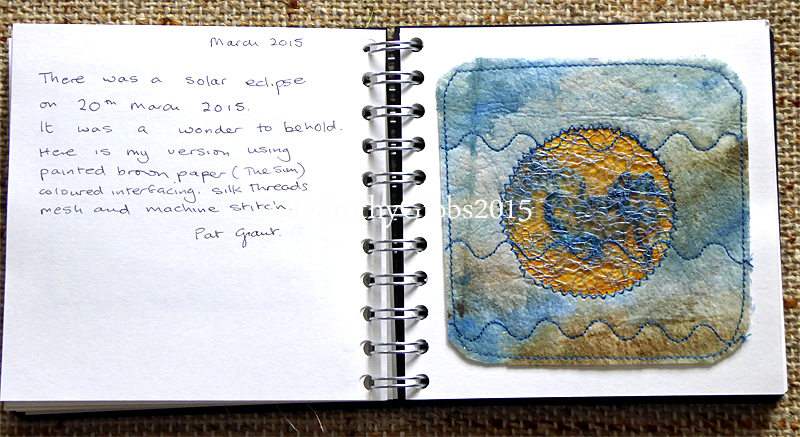 March 2015
There was a solar eclipse
on 20th March 2015.
It was a wonder to behold.
Here is my version using
painted brown paper (The Sun)
coloured interfacing, silk threads
mesh and machine stitch.
Pat Grant.